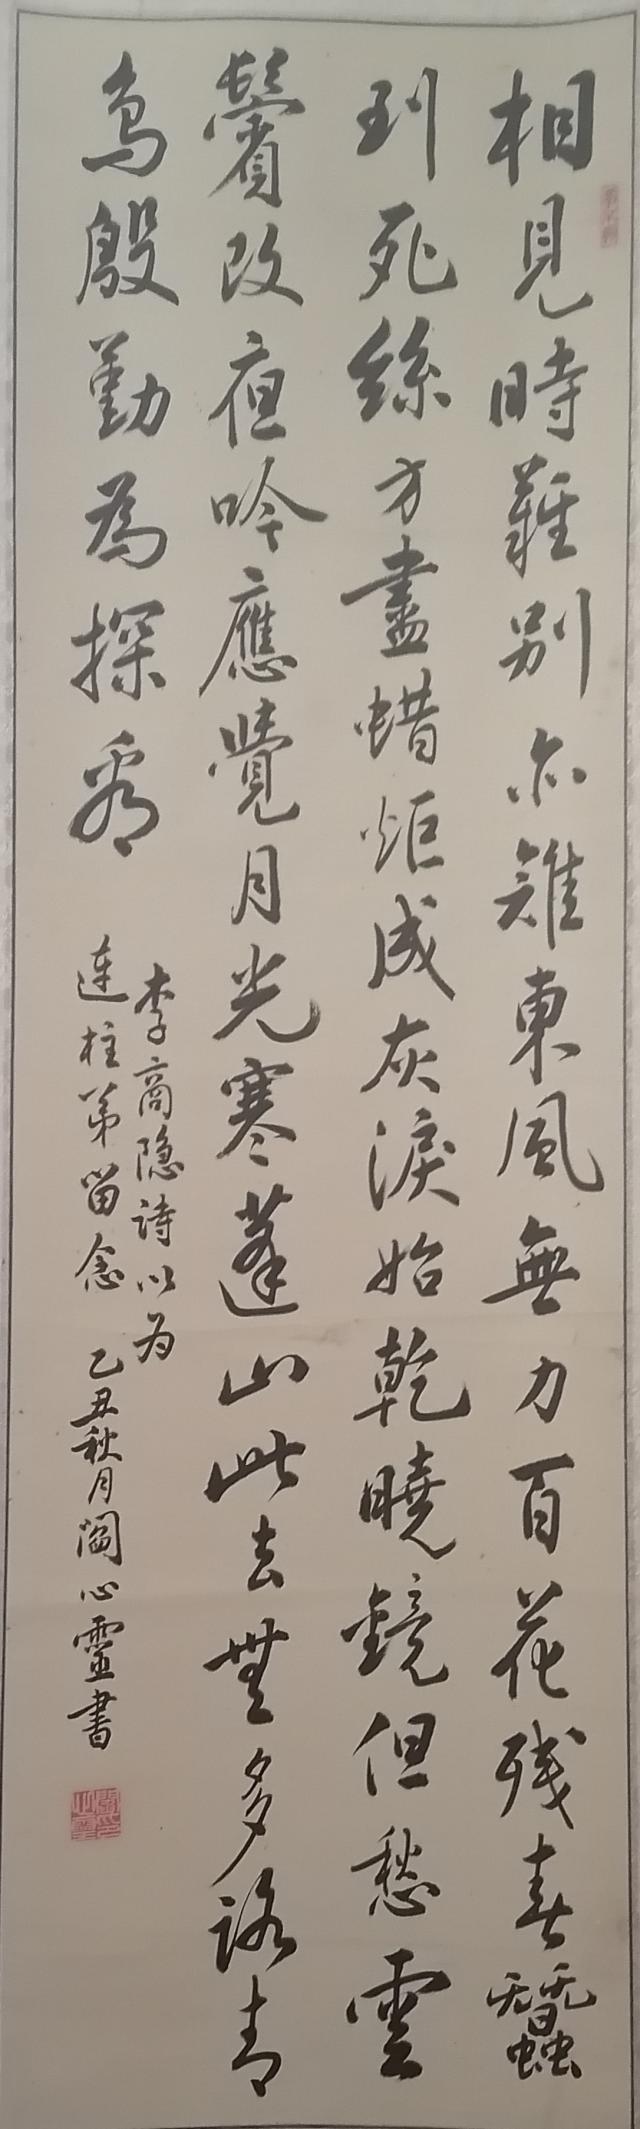 相見時難別亦難東風無力百花残春蠶
到死絲方盡蜡炬成灰淚始乾曉鏡但愁雲
鬢改夜吟應覺月光寒蓬山此去無多路青
鳥殷勤為探看
李商隐詩以为
连柱弟留念 乙丑秋月阎心靈書